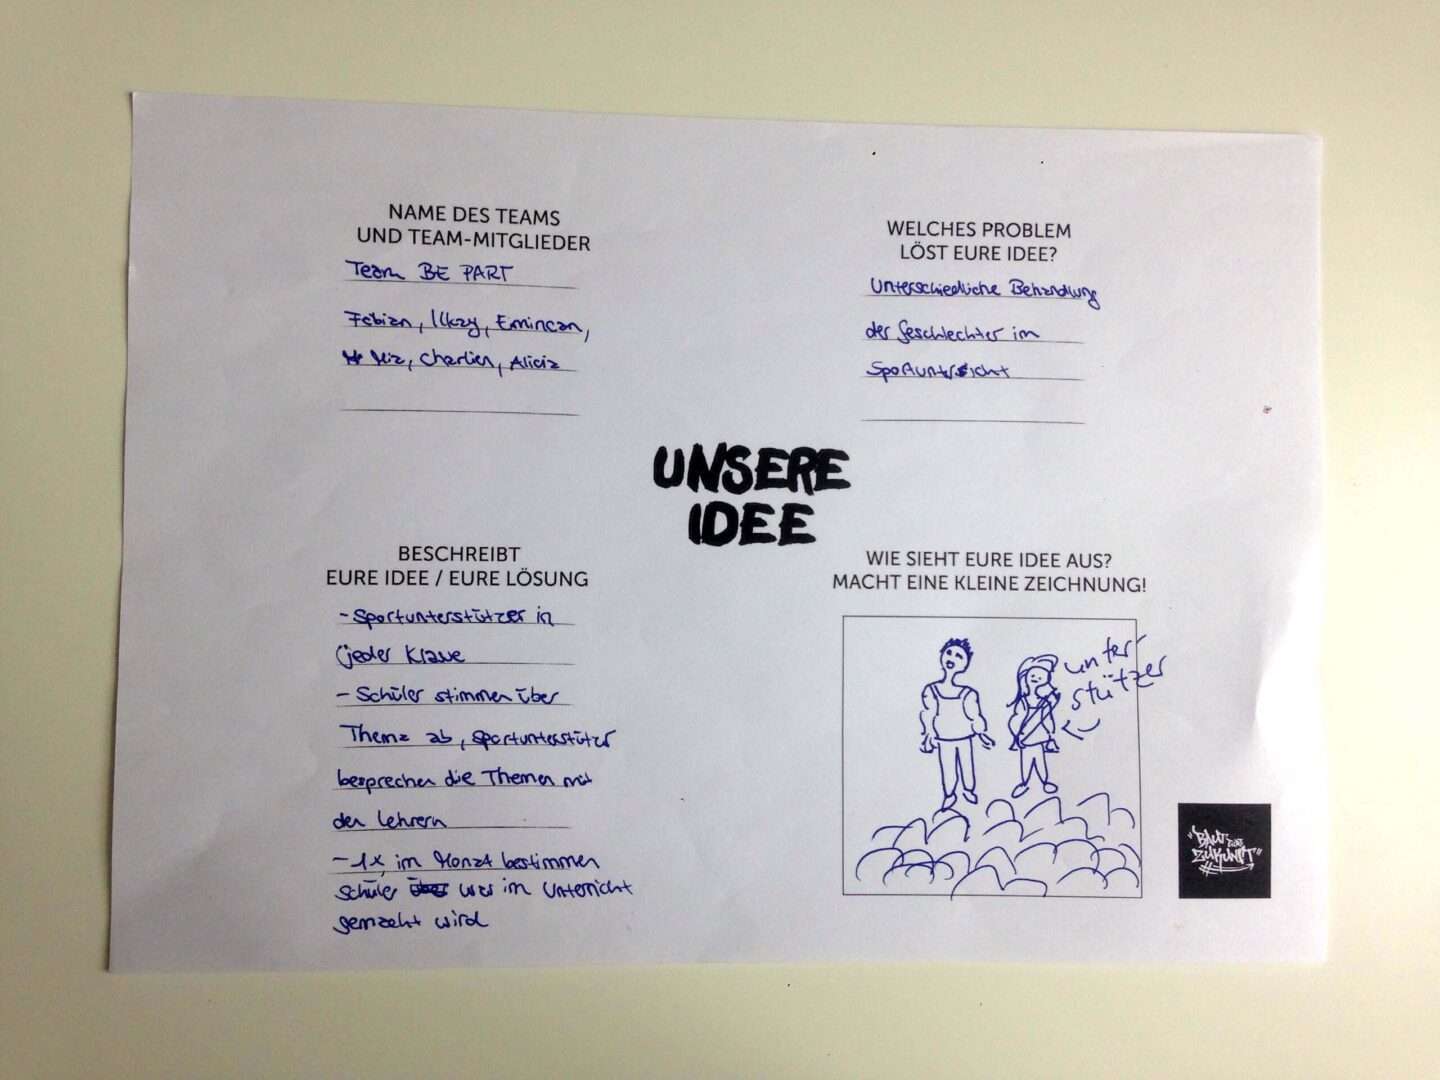 NAME DES TEAMS
UND TEAM-MITGLIEDER
Team BE PART
Fabian, Ilkay, Emincan,
Mia, Charlien, Alicia
WELCHES PROBLEM
LÖST EURE IDEE?
Unterschiedliche Behandlung
der Geschlechter im
Sportunterricht
UNSERE
IDEE
BESCHREIBT
EURE IDEE / EURE LÖSUNG
- Sportunterstützer in
jeder Klasse
- Schüler stimmen über
Thema ab, Sportunterstützer
besprechen die Themen mit
den Lehrern
- 1x im Monat bestimmen
Schüler was im Unterricht
gemacht wird
WIE SIEHT EURE IDEE AUS?
MACHT EINE KLEINE ZEICHNUNG!
unter
stützer
"BAUT
ZUKUNFT"